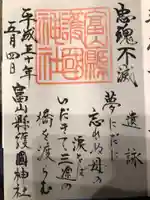 忠魂不滅
遺詠
夢にだに
忘れぬ母の
涙をば
いだきて三途の
橋を渡らむ
富山縣護國神社
平成三十年
五月四日
富山縣護國神社